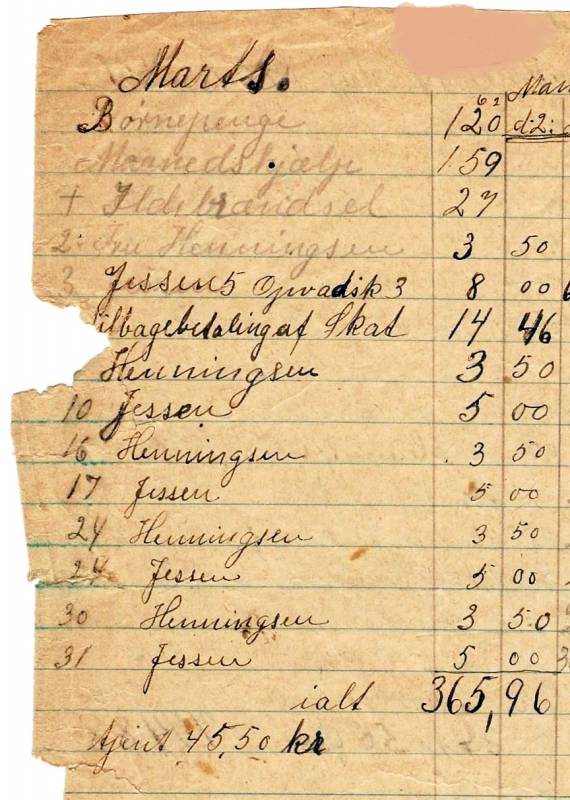 Marts.
Børnepenge 120 d:2:
Maanedshjælp 159
+ Ildebrændsel 27
2: Fru Henningsen 3 50
3 Jessen 5 Opvadsk 3 8 00
tilbagebetaling af Skat 14 46
Henningsen 3 50
10 Jessen 5 00
16 Henningsen 3 50
17 Jessen 5 00
24 Henningsen 3 50
24 Jessen 5 00
30 Henningsen 3 50
31 Jessen 5 00
ialt 365,96
tjent 45,50 kr